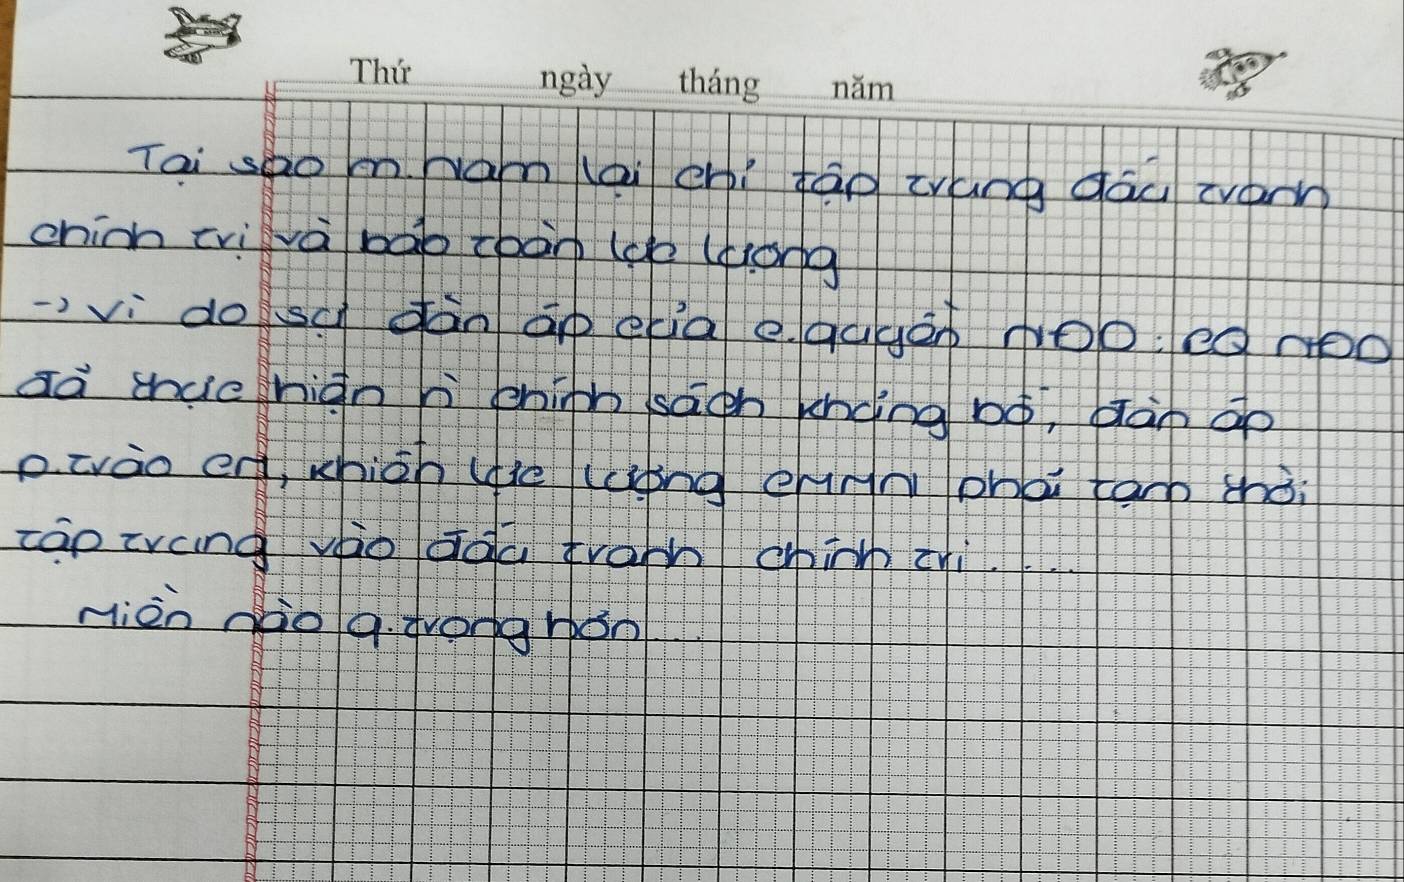 Thứ ngày tháng năm
Tại sao m.Nam lại chỉ tập trung đấu tranh
chính trị và bảo toàn lực lượng
-> vì do sự đàn áp của c.quyền NĐD: CQ NĐD
đã thực hiện n` chính sách khủng bố, đàn áp
p.trào CM, khiến lực lượng CMMN phải tạm thời
tập trung vào đấu tranh chính trị....
Miền nào q.trọng hơn...